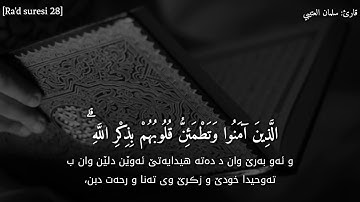 [Ra'd suresi 28]
قارئ: سلمان العتيبي
الَّذِينَ آمَنُوا وَتَطْمَئِنُّ قُلُوبُهُمْ بِذِكْرِ اللَّهِ ۗ
و ئەو بەرێ وان د دەتە هیدایەتێ ئەوێن دلێن وان ب
تەوحیدا خودێ و زکرێ وی تەنا و رحەت دبن،